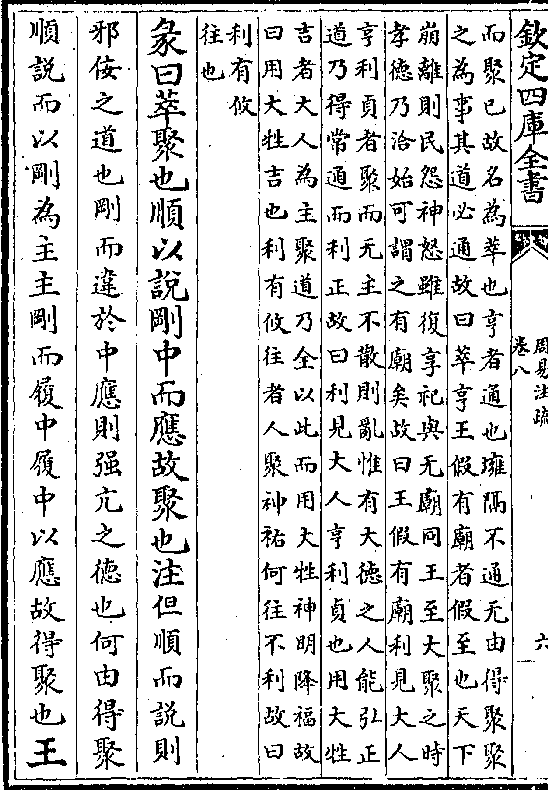 欽定四庫全書
周易注疏
卷八
六
而聚已故名為萃也亨者通也擁隔不通无由得聚聚
之為事其道必通故曰萃亨王假有廟者假至也天下
崩離則民怨神怒雖復享祀與无廟同王至大聚之時
孝德乃洽始可謂之有廟矣故曰王假有廟利見大人
亨利貞者聚而无主不散則亂惟有大德之人能弘正
道乃得常通而利正故曰利見大人亨利貞也用大牲
吉者大人為主聚道乃全以此而用大牲神明降福故
曰用大牲吉也利有攸往者人聚神祐何往不利故曰
利有攸
往也
彖曰萃聚也順以說剛中而應故聚也注但順而說則
邪佞之道也剛而違於中應則强亢之德也何由得聚
順說而以剛為主主剛而履中履中以應故得聚也王